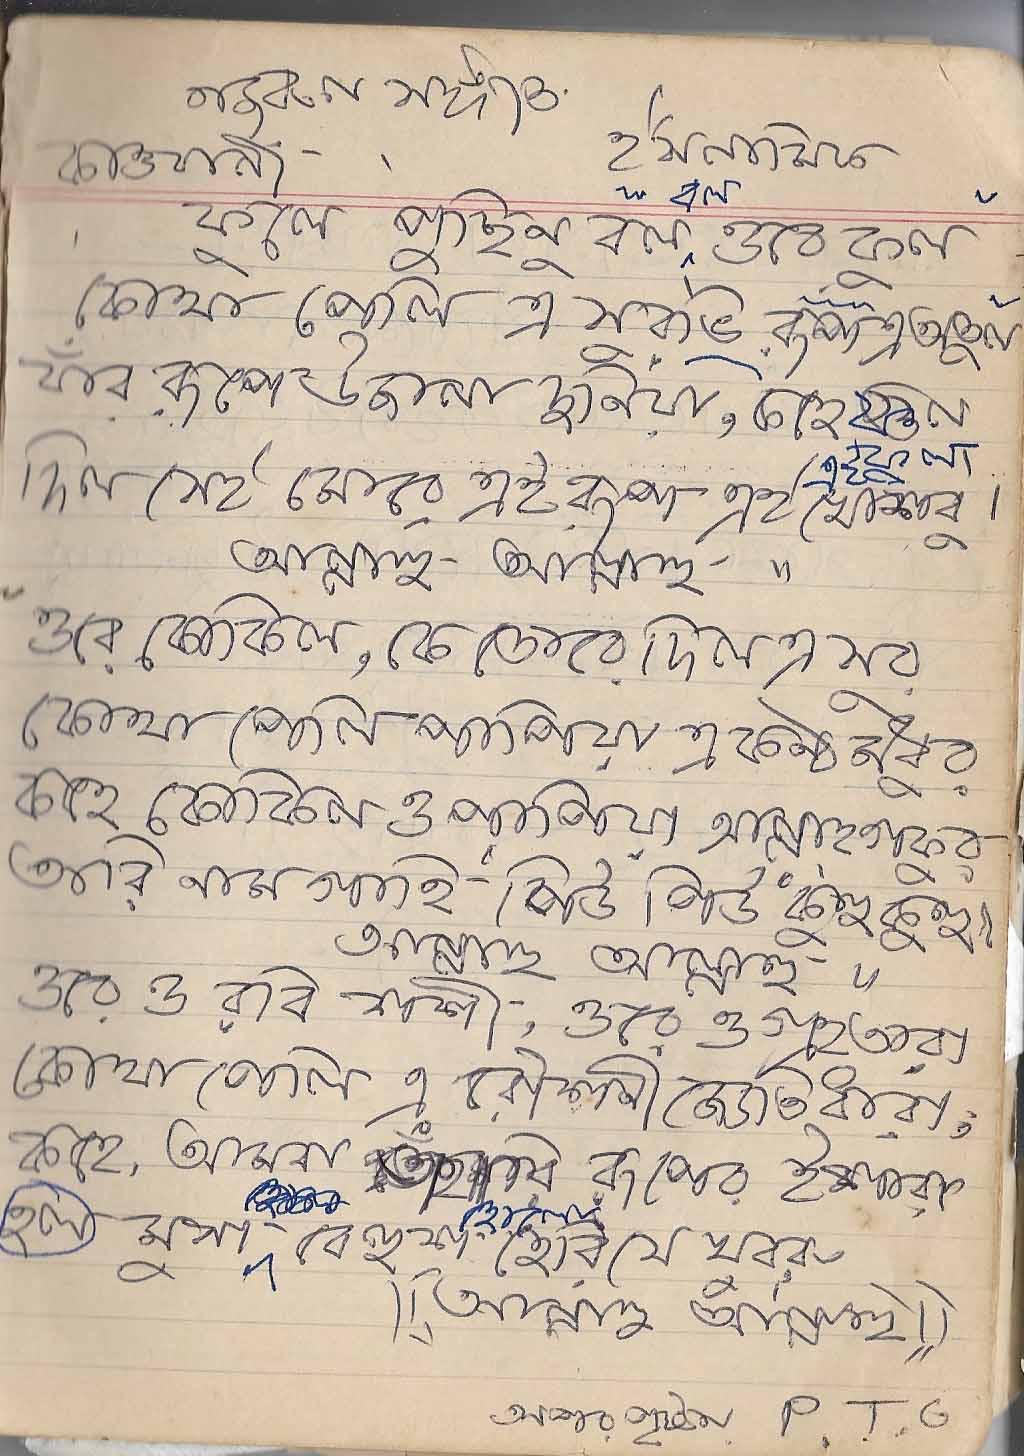 নজরুল সঙ্গীত
কাওয়ালী - ইসলামিক
ফুলে পুছিনু বল, বল ওরে ফুল
কোথা পেলি এ সুরভি রূপ এ অতুল
যাঁর রূপে উজালা দুনিয়া, কহে গুল
দিল সেই মোরে এই রূপ এই খোশবু।
আল্লাহু - আল্লাহু - "
ওরে কোকিল, কে তোরে দিল এ সুর
কোথা পেলি পাপিয়া এ কন্ঠ মধুর
কহে কোকিল ও পাপিয়া আল্লাহ গফুর
তাঁরি নাম গাহি - পিউ পিউ কুহু কুহু॥
আল্লাহু আল্লাহু - "
ওরে ও রবি শশী, ওরে ও গ্রহ তারা
কোথা পেলি এ রৌশনী জ্যোতি ধারা;
কহে, আমরা তাঁহারি রূপের ইশারা
হল মুসা বেহুঁশ হেরি যে খুবরু
॥ আল্লাহু আল্লাহু॥
অপর পৃষ্ঠায় P. T. O